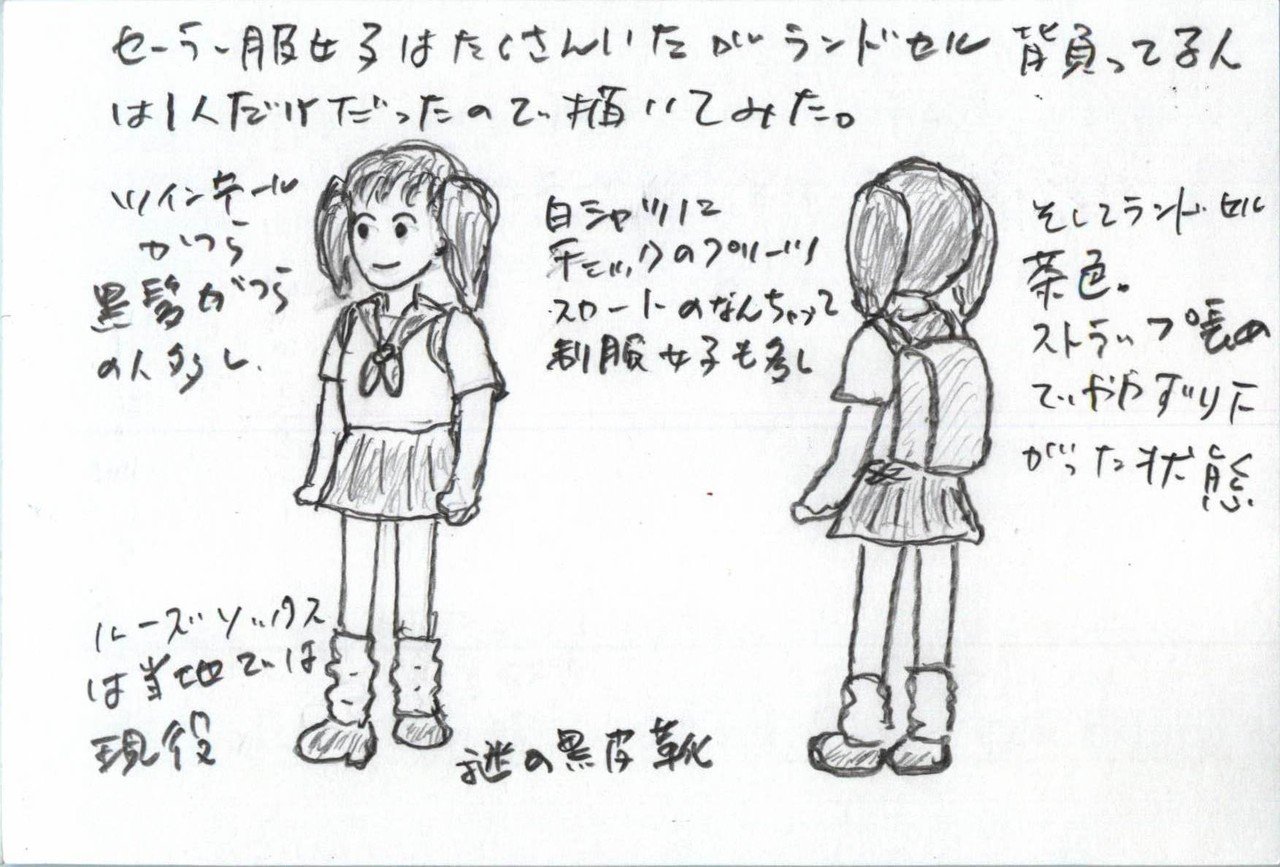 セーラー服女子はたくさんいたがランドセル背負ってる人
は1人だけだったので描いてみた。
ツインテール
かつら
黒髪がつら
の人多し.
白シャツに
チェックのプリーツ
スカートのなんちゃって
制服女子も多し
そしてランドセル
茶色。
ストラップ長め
でややずり下
がった状態
ルーズソックス
は当地では
現役
謎の黒皮靴